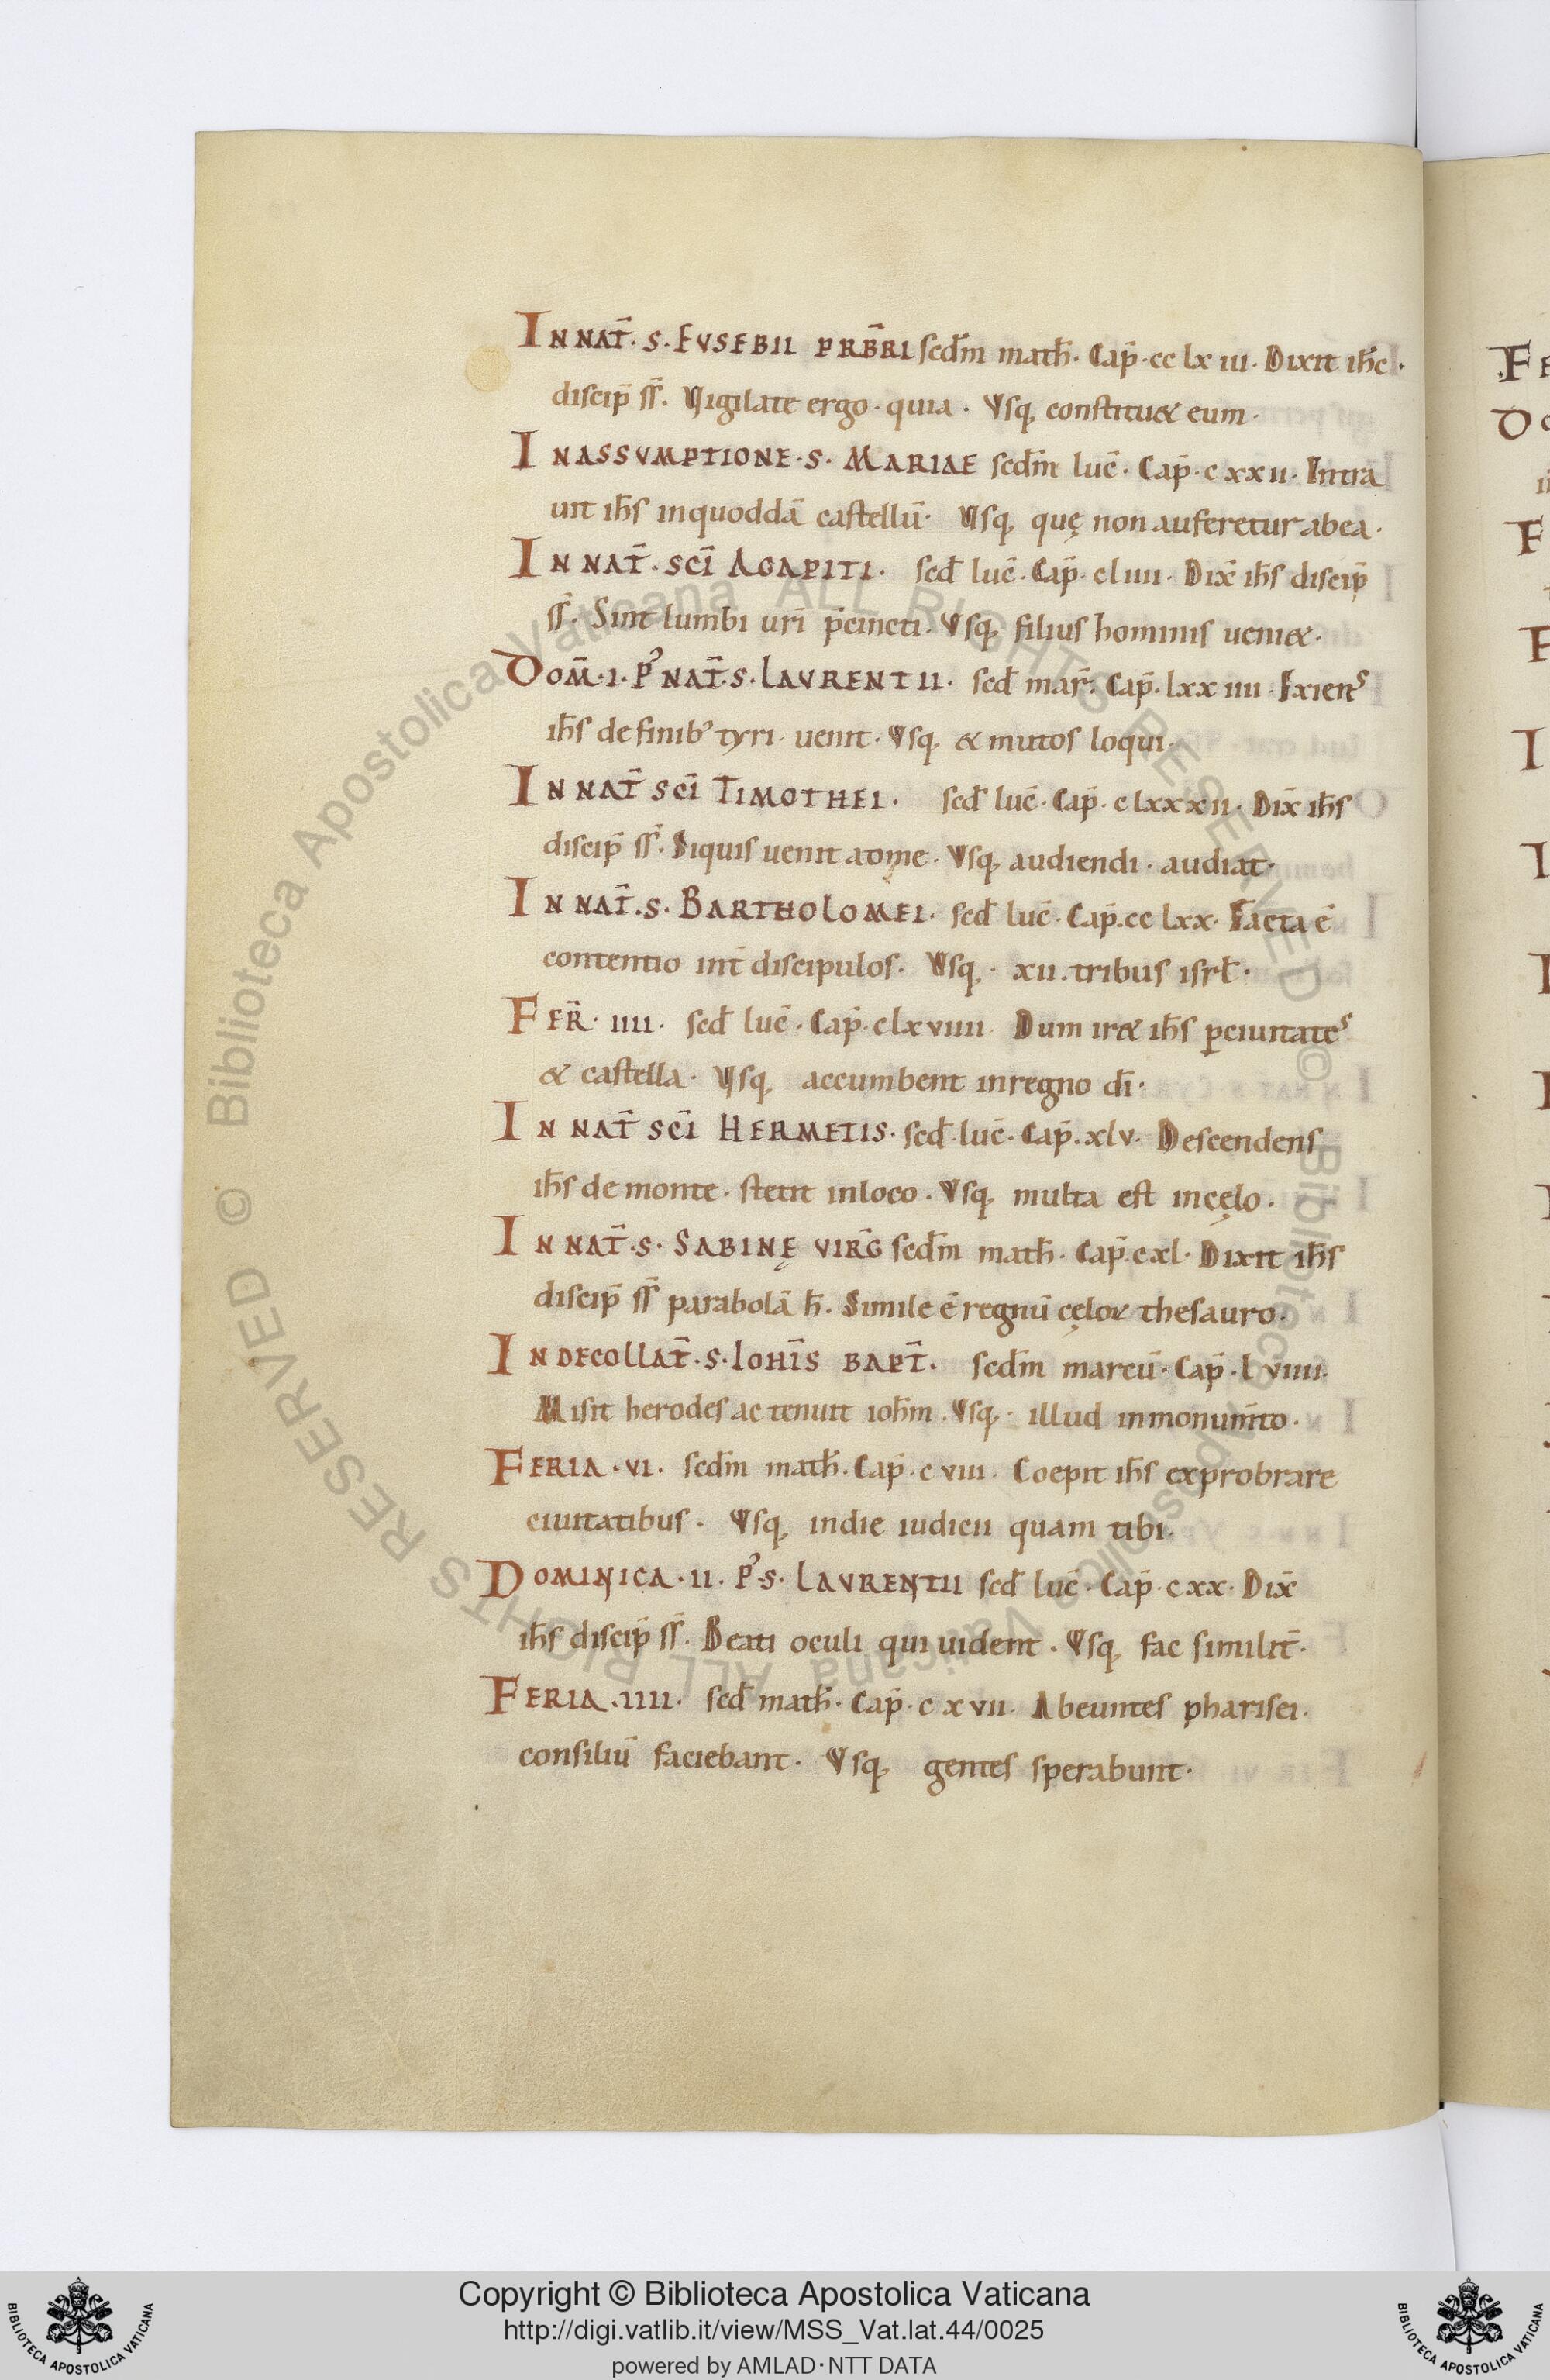 IN NAT̄. S. EVSEBII PRB̄RI scd̄m math̄. Cap̄. cc lx iii. Dixit ih̄c.
discip̄ ss̄. Vigilate ergo. quia. Vsq, constitu& eum.
IN ASSVMPTIONE. S. MARIAE scd̄m luc̄. Cap̄. c xx ii. Intra
uit ih̄s inquoddā castellū. Vsq, quę non auferetur abea.
IN NAT̄. SCĪ AGAPITI. scd̄ luc̄. Cap̄. cl iiii. Dix̄ ih̄s discip̄
ss̄. Sint lumbi urī p̄cincti. Vsq, filius hominis ueni&.
DOM̄. I. P' NAT̄. S. LAVRENTII. scd̄ mar̄. Cap̄. lxx iiii. Exiens
ih̄s de finib' tyri. uenit. Vsq, & mutos loqui.
IN NAT̄ SCĪ TIMOTHEI. scd̄ luc̄. Cap̄. c lxxx ii. Dix̄ ih̄s
discip̄ ss̄. Siquis uenit adme. Vsq, audiendi. audiat.
IN NAT̄. S. BARTHOLOMEI. scd̄ luc̄. Cap̄. cc lxx. Facta ē
contentio int̄ discipulos. Vsq,. xii. tribus isrł.
FER̄. IIII. scd̄ luc̄. Cap̄. c lx viiii. Dum ir& ih̄s ꝑciuitates
& castella. Vsq, accumbent inregno dī.
IN NAT̄ SCĪ HERMETIS. scd̄ luc̄. Cap̄. xl v. Descendens
ih̄s de monte. stetit inloco. Vsq, multa est incęlo.
IN NAT̄. S. SABINĘ VIRḠ scd̄m math̄. Cap̄. c xl. Dixit ih̄s
discip̄ ss̄ parabolā h̄. Simile ē regnū cęloꝝ thesauro.
IN DECOLLAT̄. S. IOHIS̄ BAPT̄. scd̄m marcū. Cap̄. l viiii.
Misit herodes ac tenuit ioh̄m. Vsq,. illud inmonum̄to.
FERIA. VI. scd̄m math̄. Cap̄. c viii. Coepit ih̄s exprobrare
ciuitatibus. Vsq, indie iudicii quam tibi.
DOMINICA. II. P' S. LAVRENTII scd̄ luc̄. Cap̄. c xx. Dix̄
ih̄s discip̄ ss̄. Beati oculi qui uident. Vsq, fac similit̄.
FERIA. IIII. scd̄ math̄. Cap̄. c x vii. Abeuntes pharisei.
consiliū faciebant. Vsq, gentes sperabunt.
© Biblioteca Apostolica Vaticana ALL RIGHTS RESERVED © Biblioteca Apostolica Vaticana ALL RIGHTS RESERVED
Copyright © Biblioteca Apostolica Vaticana
http://digi.vatlib.it/view/MSS_Vat.lat.44/0025
powered by AMLAD·NTT DATA
BIBLIOTECA APOSTOLICA VATICANA
BIBLIOTECA APOSTOLICA VATICANA